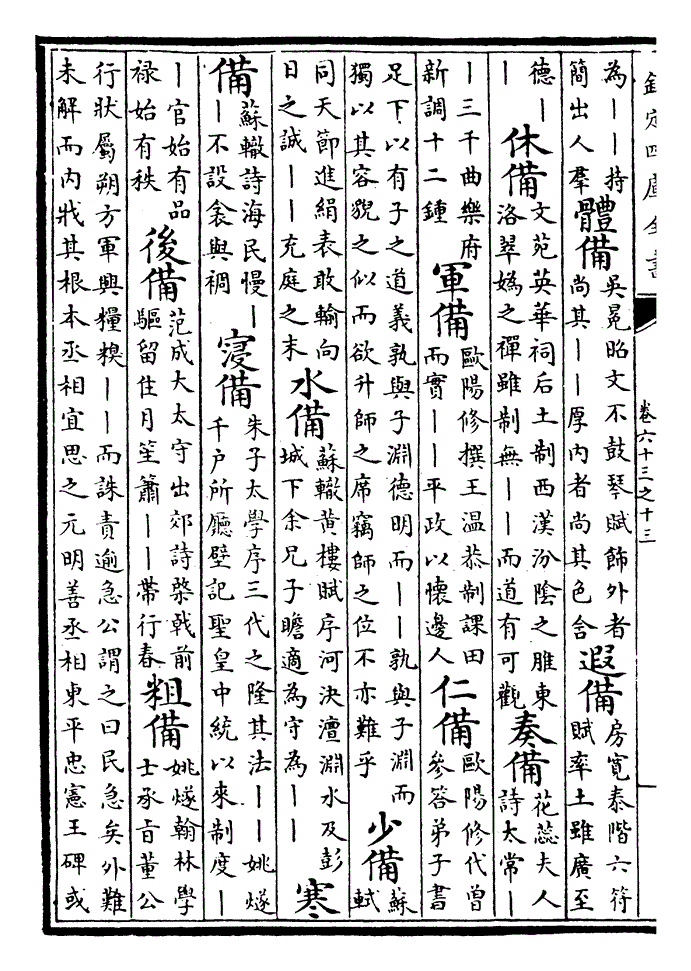 欽定四庫全書
卷六十三之十三
為｜｜持簡出人羣 體備 吳冕昭文不鼓琴賦飾外者尚其｜｜厚内者尚其色含 遐備 房寛泰階六符賦率土雖廣至
德｜｜ 休備 文苑英華祠后土制西漢汾陰之脽東洛翠媯之禪雖制無｜｜而道有可觀 奏備 花蕊夫人詩太常｜
｜三千曲樂府新調十二鍾 軍備 歐陽修撰王温恭制課田而實｜｜平政以懷邊人 仁備 歐陽修代曽參答弟子書
足下以有子之道義孰與子淵德明而｜｜孰與子淵而獨以其容貌之似而欲升師之席竊師之位不亦難乎 少備 蘇軾
同天節進絹表敢輸向日之誠｜｜充庭之末 水備 蘇轍黄樓賦序河決澶淵水及彭城下余兄子瞻適為守為｜｜ 寒
備 蘇轍詩海民慢｜｜不設衾與裯 寖備 朱子太學序三代之隆其法｜｜姚燧千户所廳壁記聖皇中統以來制度｜
｜官始有品禄始有秩 後備 范成大太守出郊詩棨戟前驅留住月笙簫｜｜帶行春 粗備 姚燧翰林學士承旨董公
行狀屬朔方軍興糧糗｜｜而誅責逾急公謂之曰民急矣外難未解而内戕其根本丞相宜思之元明善丞相東平忠憲王碑或